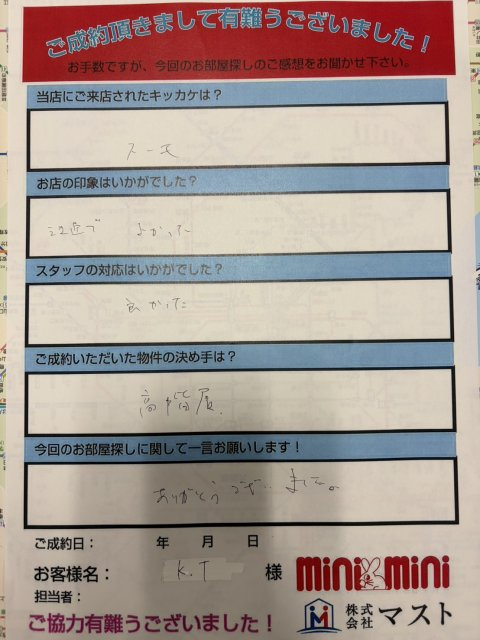 ご成約頂きまして有難うございました！
お手数ですが、今回のお部屋探しのご感想をお聞かせ下さい。
当店にご来店されたキッカケは？
スーモ
お店の印象はいかがでした？
よかった
スタッフの対応はいかがでした？
良かった
ご成約いただいた物件の決め手は？
高階層
今回のお部屋探しに関して一言お願いします！
ありがとう
ご成約日： 年 月 日
お客様名： K.T 様
担当者：
ご協力有難うございました！
mini mini
株式会社 マスト